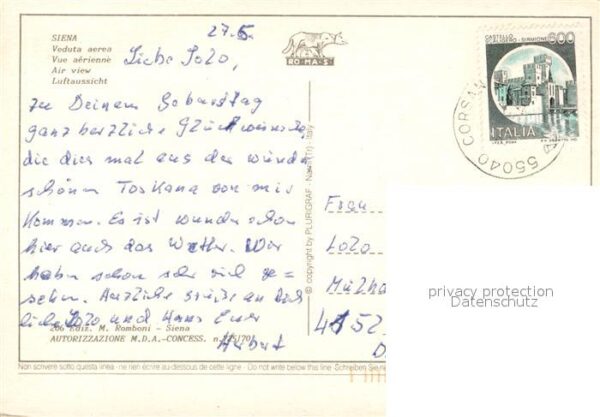 SIENA
Veduta aerea
Vue aérienne
Air view
Luftaussicht
RO-MA-S
27.5.
Liebe Lolo,
zu Deinem Geburtstag
ganz herzliche Glückwünsche,
die dies mal aus der wunder
schönen Toskana von mir
kommen. Es ist wunderschön
hier auch das Wetter. Wir
haben schon sehr viel ge=
sehen. Herzliche Grüße an Dich
liebe Lolo und Hans Euer
Hubert
206 Ediz. M. Romboni - Siena
AUTORIZZAZIONE M.D.A.-CONCESS. n.
Non scrivere sotto questa linea - ne rien écrire au-dessous de cette ligne - Do not write below this line - Schreiben Sie
© copyright by PLURIGRAF - Narni (Tr) - Italy
CASTELLO
SCALIGERO - SIRMIONE
600
ITALIA
55040 CORSAN
Frau
Lolo
Mülha
4152
privacy protection
Datenschutz